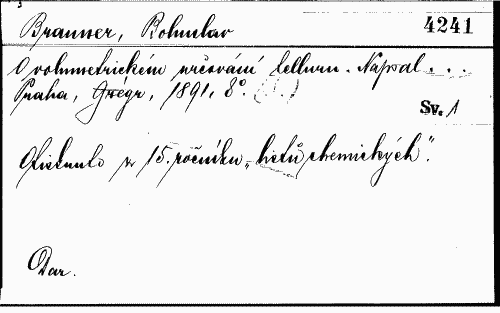 Brauner, Bohuslav 4241
O volumetrickém určování telluru. Napsal...
Praha, Gregr, 1891. 8°.
Sv. 1
Otisknuto z 15. ročníku „Listů chemických“.
Dar.